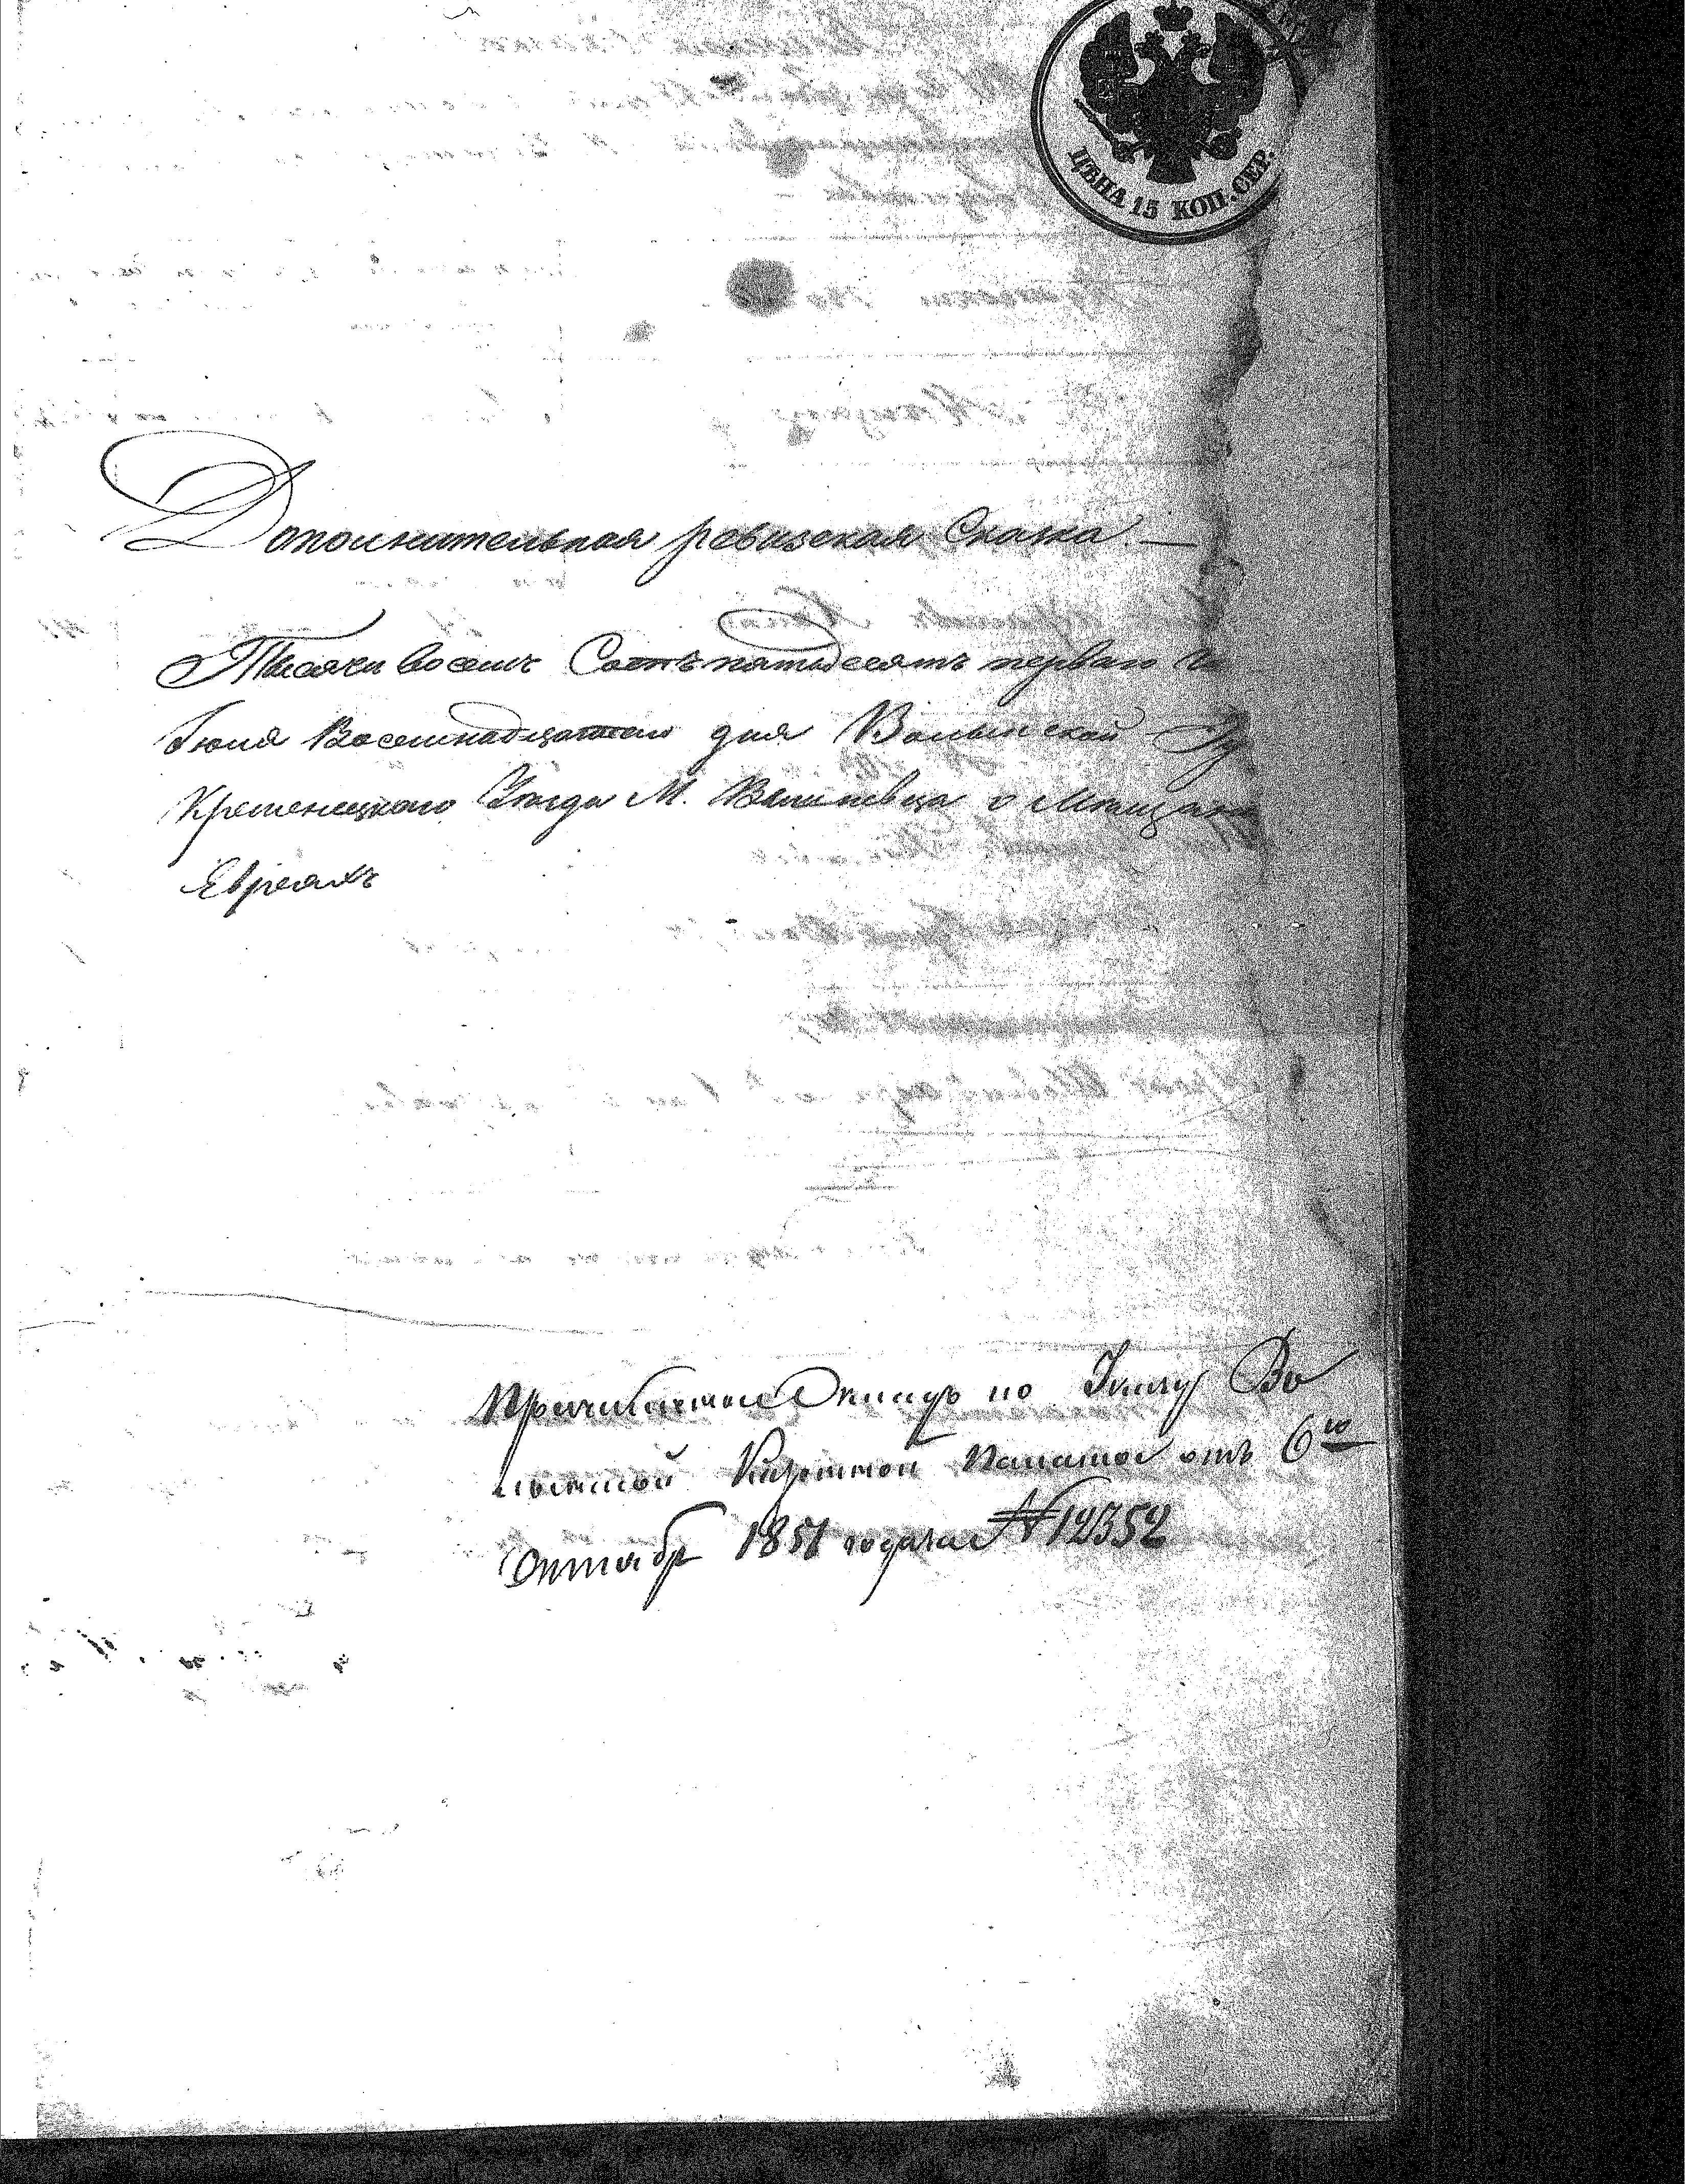 ЦѢНА 15 КОП. СЕР.
Дополнительная ревизская Сказка. —
Тысяча восемь Сотъ пятьдесятъ перваго Го
Іюня Восемнадцатого дня Волынской Гу
Кременецкаго Уѣзда М. о Мѣщана
Евреяхъ
по Указу Во
лынской Казенной Палаты отъ 6го
Октября 1851 года за №12352